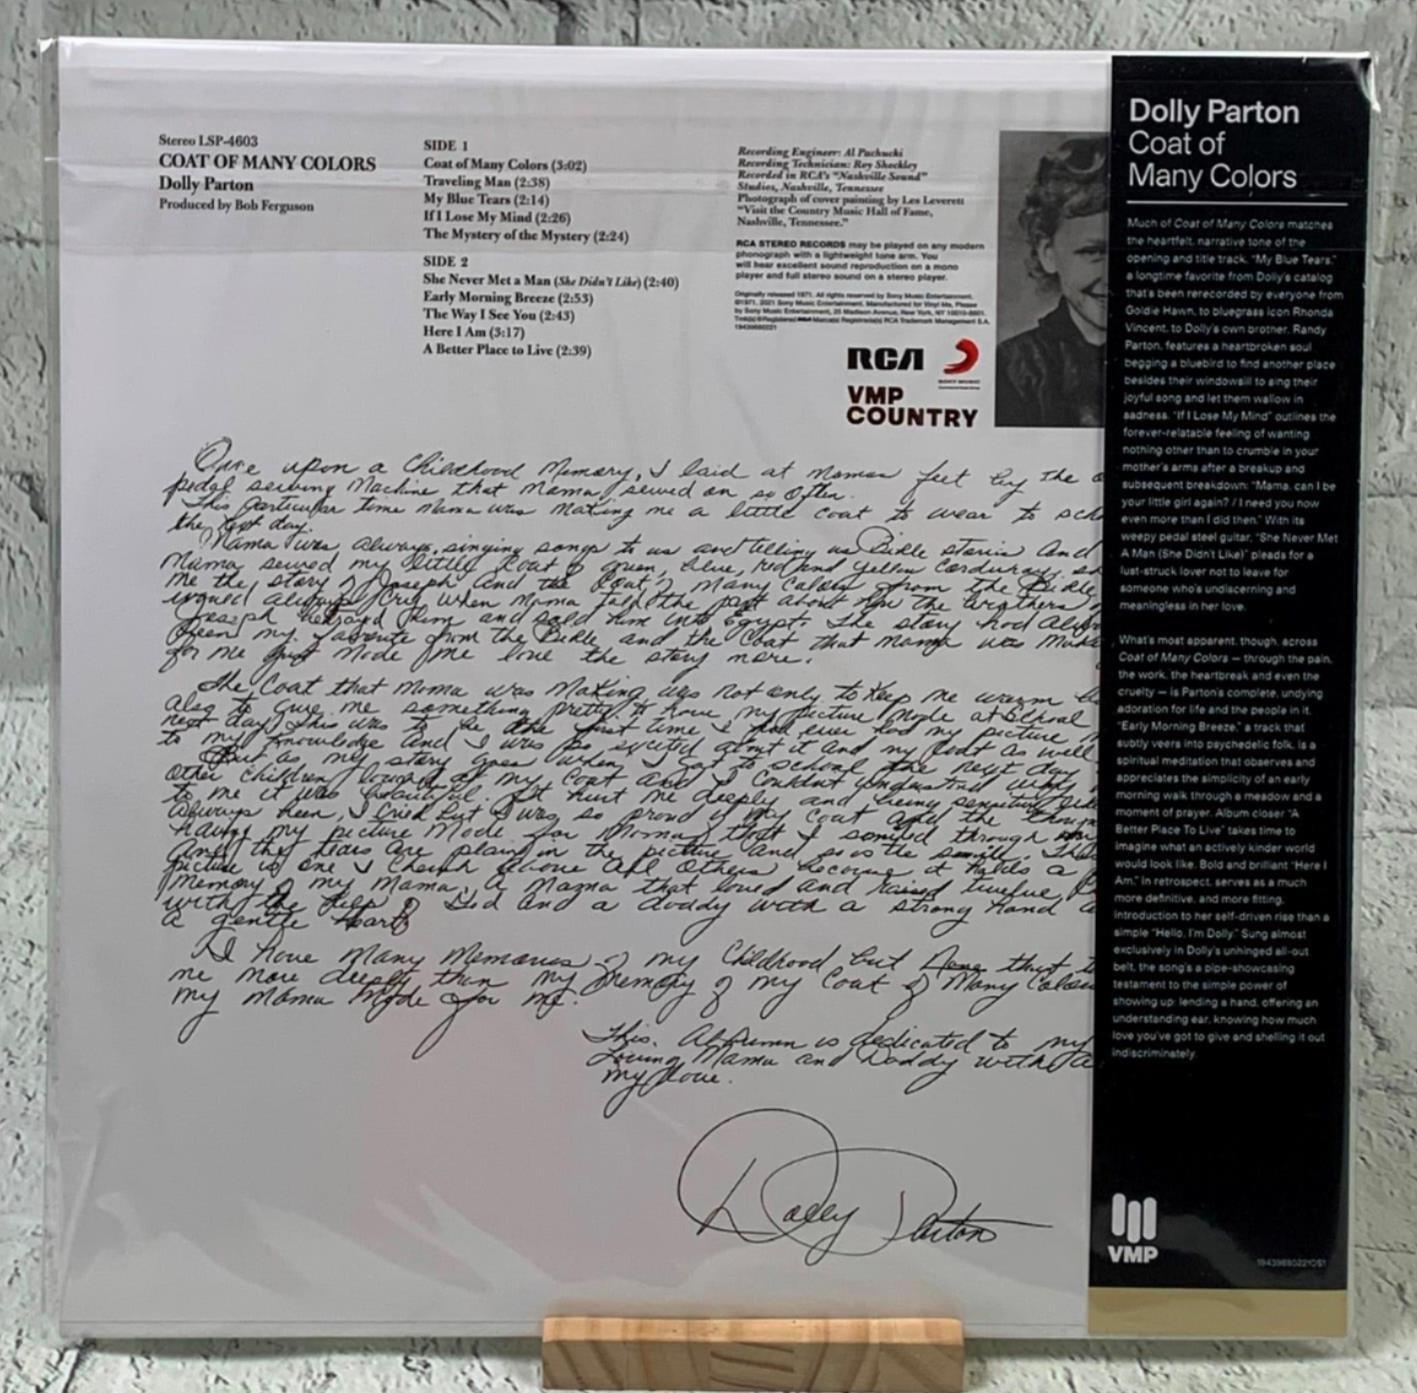 Stereo LSP-4603
COAT OF MANY COLORS
Dolly Parton
Produced by Bob Ferguson
SIDE 1
Coat of Many Colors (3:02)
Traveling Man (2:38)
My Blue Tears (2:14)
If I Lose My Mind (2:26)
The Mystery of the Mystery (2:24)
SIDE 2
She Never Met a Man (She Didn't Like) (2:40)
Early Morning Breeze (2:53)
The Way I See You (2:43)
Here I Am (3:17)
A Better Place to Live (2:39)
Recording Engineer: Al Pachucki
Recording Technician: Roy Shockley
Recorded in RCA's "Nashville Sound"
Studios, Nashville, Tennessee
Photograph of cover painting by Les Leverett
"Visit the Country Music Hall of Fame,
Nashville, Tennessee."
RCA STEREO RECORDS may be played on any modern
phonograph with a lightweight tone arm. You
will hear excellent sound reproduction on a mono
player and full stereo sound on a stereo player.
Originally released 1971. All rights reserved by Sony Music Entertainment.
©1971, 2021 Sony Music Entertainment. Manufactured for Vinyl Me, Please
by Sony Music Entertainment, 25 Madison Avenue, New York, NY 10010-8601.
Tmk(s) ® Registered Marca(s) Registrada(s) RCA Trademark Management S.A.
19439880221
RCA
SONY MUSIC
VMP
COUNTRY
Once upon a Childhood Memory, I laid at Mamas feet by the
pedal sewing Machine that Mama sewed on so often.
This particular time Mama was Making me a little coat to wear to sch
the next day.
Mama was always singing songs to us and telling us Bible stories And
Mama sewed my little Coat of green, blue, red and yellow corduroy, sh
me the story of Joseph and the Coat of many Colors from the Bible
would always cry when Mama told the part about how the brothers
Joseph betrayed him and sold him into Egypt. The story had alway
been my favorite from the Bible and the coat that Mama was Maki
for me just Made me love the story more.
The Coat that Moma was Making was not only to Keep me warm b
Also to give me something pretty to have my picture Made at School
next day. This was to be the first time I had ever had my picture M
to my knowledge and I was so excited about it and my Coat as well
But as my story goes when I got to school the next day
other children laughed at my Coat and I couldn't understand why
to me it was beautiful. It hurt me deeply and being sensitive like
Always been, I cried but I was so proud of my coat and the though
having my picture Made for Moma that I smiled through my
And the tears are plain in the picture and so is the smile. This
picture is one I Cherish above all others because it holds a
Memory of my Mama. A Mama that loved and raised twelve
with the help of God and a daddy with a strong hand a
a gentle heart
I have Many Memories of my Childhood but None that to
me more deeply than my memory of my Coat of Many Colors
my Mama Made for me.
This Album is dedicated to my
Loving Mama and Daddy with a
my love.
Dolly Parton
Dolly Parton
Coat of
Many Colors
Much of Coat of Many Colors matches
the heartfelt, narrative tone of the
opening and title track. "My Blue Tears,"
a longtime favorite from Dolly's catalog
that's been rerecorded by everyone from
Goldie Hawn, to bluegrass icon Rhonda
Vincent, to Dolly's own brother, Randy
Parton, features a heartbroken soul
begging a bluebird to find another place
besides their windowsill to sing their
joyful song and let them wallow in
sadness. "If I Lose My Mind" outlines the
forever-relatable feeling of wanting
nothing other than to crumble in your
mother's arms after a breakup and
subsequent breakdown: "Mama, can I be
your little girl again? / I need you now
even more than I did then." With its
weepy pedal steel guitar, "She Never Met
A Man (She Didn't Like)" pleads for a
lust-struck lover not to leave for
someone who's undiscerning and
meaningless in her love.
What's most apparent, though, across
Coat of Many Colors — through the pain,
the work, the heartbreak and even the
cruelty — is Parton's complete, undying
adoration for life and the people in it.
"Early Morning Breeze," a track that
subtly veers into psychedelic folk, is a
spiritual meditation that observes and
appreciates the simplicity of an early
morning walk through a meadow and a
moment of prayer. Album closer "A
Better Place To Live" takes time to
imagine what an actively kinder world
would look like. Bold and brilliant "Here I
Am," in retrospect, serves as a much
more definitive, and more fitting,
introduction to her self-driven rise than a
simple "Hello, I'm Dolly." Sung almost
exclusively in Dolly's unhinged all-out
belt, the song's a pipe-showcasing
testament to the simple power of
showing up: lending a hand, offering an
understanding ear, knowing how much
love you've got to give and shelling it out
indiscriminately.
VMP
19439880221OS1